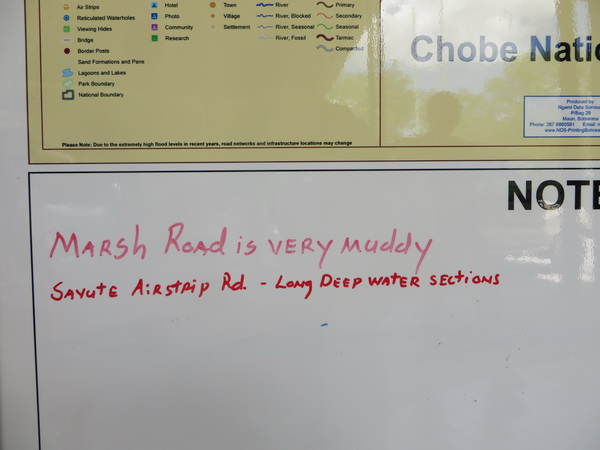 Air Strips
Reticulated Waterholes
Viewing Hides
Bridge
Border Posts
Sand Formations and Pans
Lagoons and Lakes
Park Boundary
National Boundary
Hotel
Photo
Community
Research
Town
Village
Settlement
River
River, Blocked
River, Seasonal
River, Fossil
Primary
Secondary
Seasonal
Tarmac
Compacted
Please Note: Due to the extremely high flood levels in recent years, road networks and infrastructure locations may change
Chobe Natio
Produced by:
Ngami Data Service
P/Bag 28
Maun, Botswana
NOTE
MARSH ROAD is VERY MUDDY
SAVUTE AiRSTRIP Rd. - LONG DEEP WATER SECTIONS